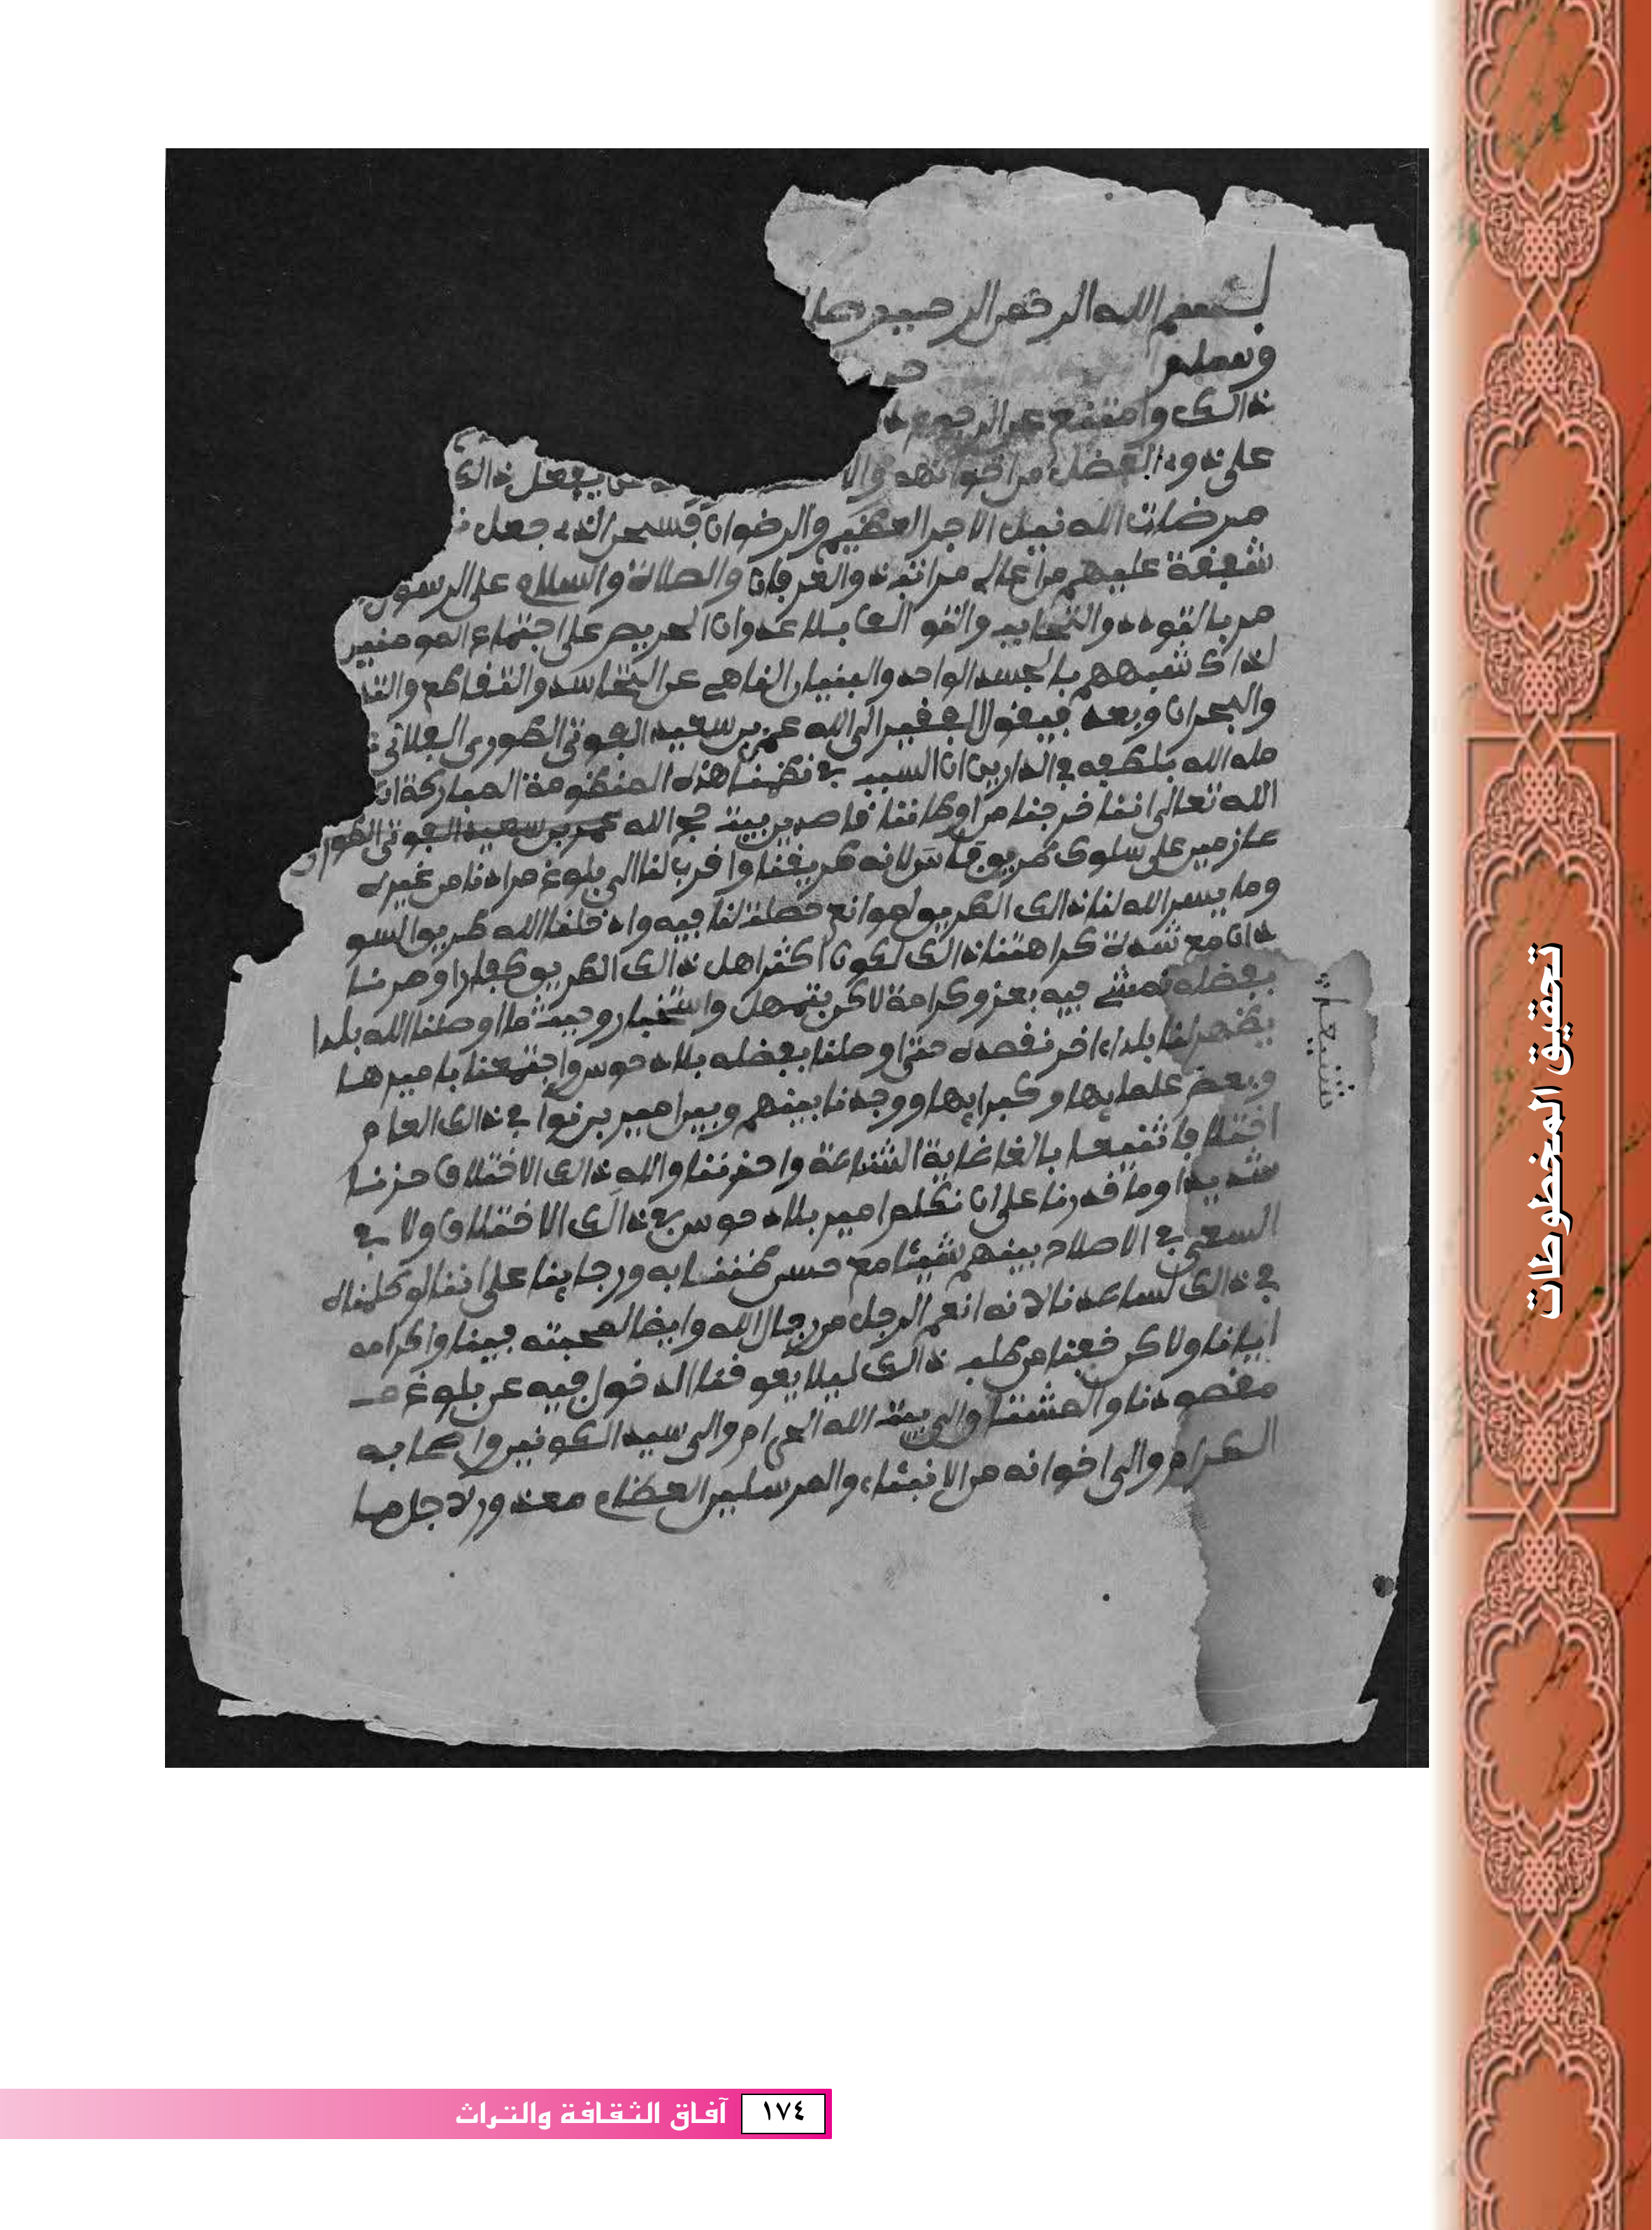 بسم الله الرحمن الرحيم صلى
وسلم
ذالك وامتنع عن الرجوع
على ذوي الفضل من اخوانهم والا يفعل ذالك
مرضات الله نيل الاجر العظيم والرضوان فسبحن الذي جعل
شفقة عليهم من اعالي مراتب والعرفان والصلاة والسلام على الرسول
مر بالتودد والتحابب والتوالف بلا عدوان الحريص على اجتماع المومنين
لذاك شبههم بالجسد الواحد والبنيان الناهي عن التحاسد والتقاطع والتد
والهجران وبعد فيقول الفقير الى الله عمر بن سعيد الفوتي الطوري الفلاني
مله الله بلطفه في الدارين ان السبب في نظمنا هذه المنظومة المباركة ان
الله تعالى اننا خرجنا من اوطاننا قاصدين بيت الله عمر بن سعيد الفوتي الطور
عازمين على سلوك طريق فاس لانه طريقنا واقرب لنا الى بلوغ مرادنا من غيره
وما يسر الله لنا ذالك الطريق لموانع حصلت لنا فيه وادخلنا الله طريق السو
دان مع شدة كراهتنا ذالك لكون اكثر اهل ذالك الطريق كفارا وصرنا
بفضله نمشي فيه بعز وكرامة لاكن بتمهل واستخبار وحيث ما اوصلنا الله بلدا
يظهر لنا بلد اخر نقصده حتى اوصلنا بفضله بلاد حوس واجتمعنا باميرها
وبعض علمايها وكبرايها ووجدنا بينهم وبين امير برنو في ذالك العام
اختلافا شنيعا بالغا غاية الشناعة واحزننا والله ذالك الاختلاف حزنا
شديدا وما قدرنا على ان نكلم امير بلاد حوس في ذالك الاختلاف ولا في
السعي في الاصلاح بينهم شيئا مع حسن ظننا به ورجاينا على اننا لو كلمناه
في ذالك لساعدنا لانه انعم الرجل من رجال الله وايضا لمحبته فينا واكرامه
ايانا ولاكن خفنا من طلب ذالك ليلا يعوقنا الدخول فيه عن بلوغ
مقصودنا والمشتاق الى بيت الله الحرام والى سيد الكونين واصحابه
الكرام والى اخوانه من الانبياء والمرسلين العظام معذور لاجل ما
شنيعا
تحقيق المخطوطات
١٧٤ آفاق الثقافة والتراث